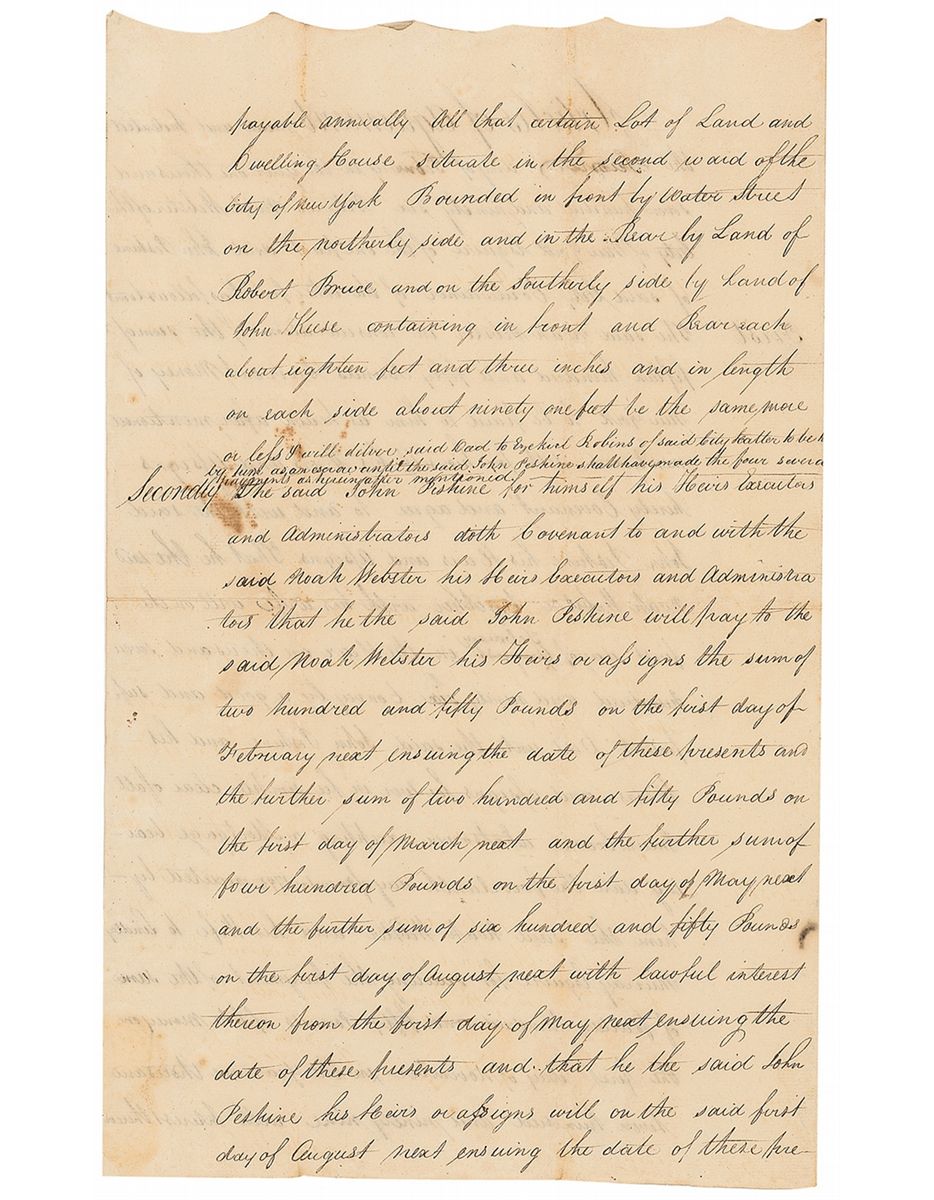 payable annually All that certain Lot of Land and
Dwelling House situate in the second ward of the
City of New York Bounded in front by Water Street
on the northerly side and in the Rear by Land of
Robert Bruce and on the Southerly side by Land of
John Keese containing in front and Rear each
about eighteen feet and three inches and in length
on each side about ninety one feet be the same more
or less I will diliver said Deed to Ezekiel Robins of said City hatter to be
by him as an escrow until the said John Peshine shall have made the four several
payments as hereinafter mentioned.
Secondly The said John Peshine for himself his Heirs Executors
and Administrators doth Covenant to and with the
said Noah Webster his Heirs Executors and Administra
tors that he the said John Peshine will pay to the
said Noah Webster his Heirs or assigns the sum of
two hundred and fifty Pounds on the first day of
February next ensuing the date of these presents and
the further sum of two hundred and fifty Pounds on
the first day of March next and the further sum of
four hundred Pounds on the first day of May next
and the further sum of six hundred and fifty Pounds
on the first day of August next with lawful interest
thereon from the first day of May next ensuing the
date of these presents and that he the said John
Peshine his Heirs or assigns will on the said first
day of August next ensuing the date of these pre